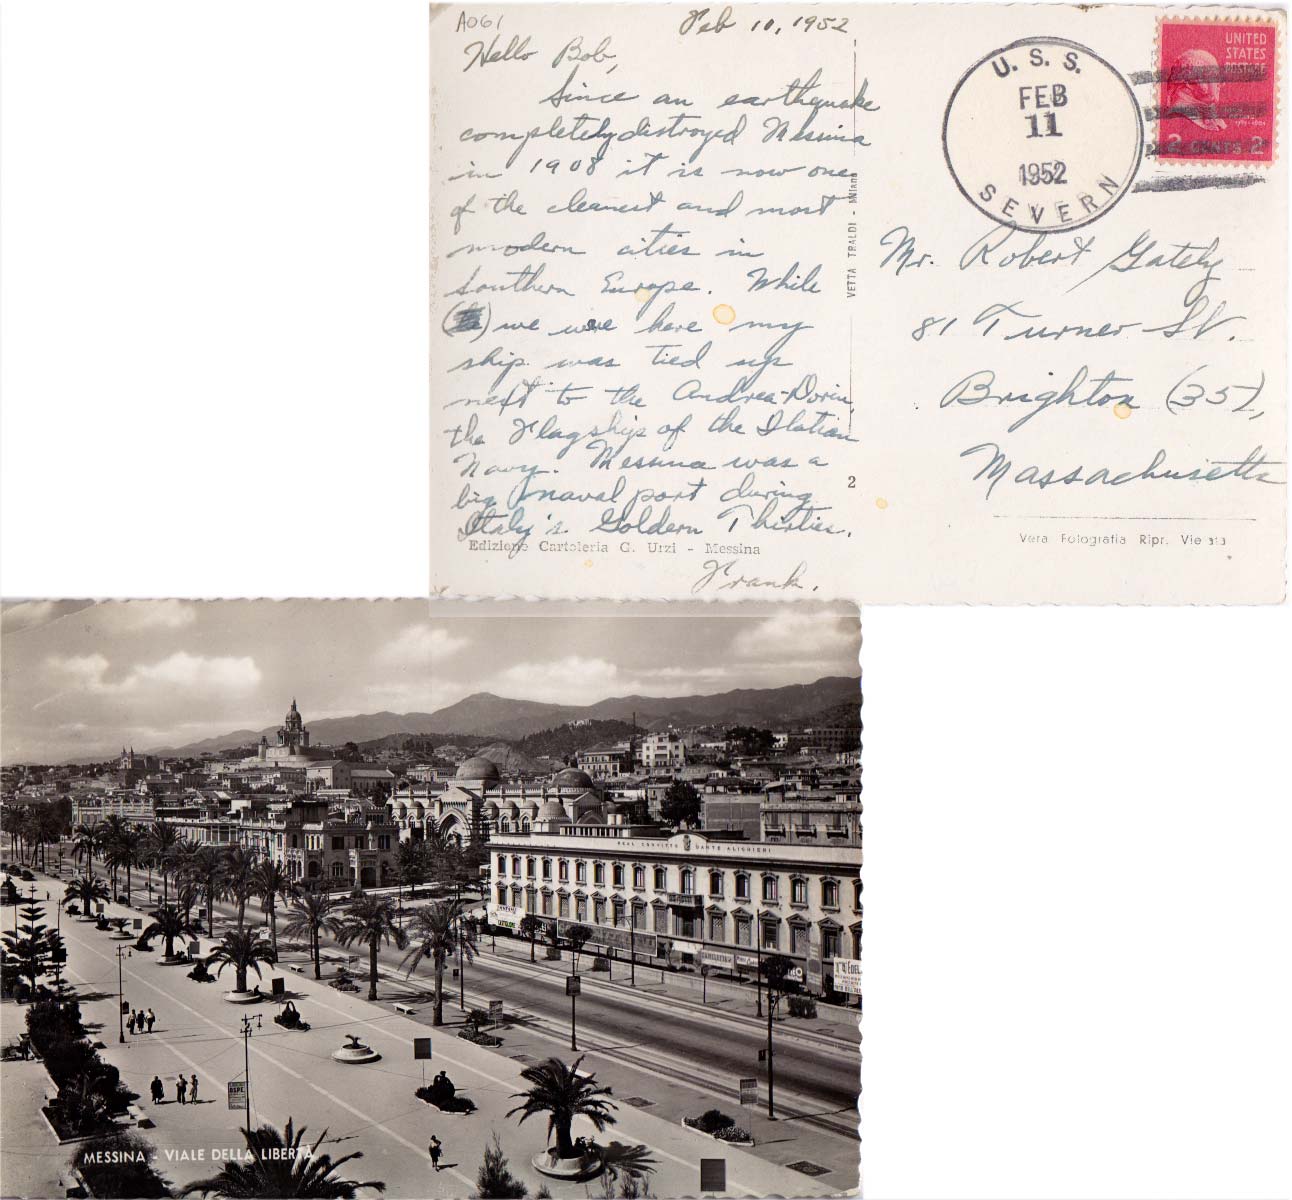 A061
Feb 10, 1952
Hello Bob,
Since an earthquake
completely distroyed Messina
in 1908 it is now one
of the cleanest and most
modern cities in
Southern Europe. While
we were here my
ship was tied up
next to the Andrea-Doria,
the Flagship of the Italian
Navy. Messina was a
big naval port during
Italy's Goldern Thirties.
Edizione Cartoleria G. Urzi - Messina
Frank.
VETTA TRALDI - Milano
2
U. S. S.
FEB
11
1952
SEVERN
UNITED
STATES
POSTAGE
2 CENTS 2
Mr. Robert Gately
81 Turner St.
Brighton (35),
Massachusetts
Vera Fotografia Ripr. Vietata
REAL CONVITTO DANTE ALIGHIERI
MESSINA - VIALE DELLA LIBERTÀ